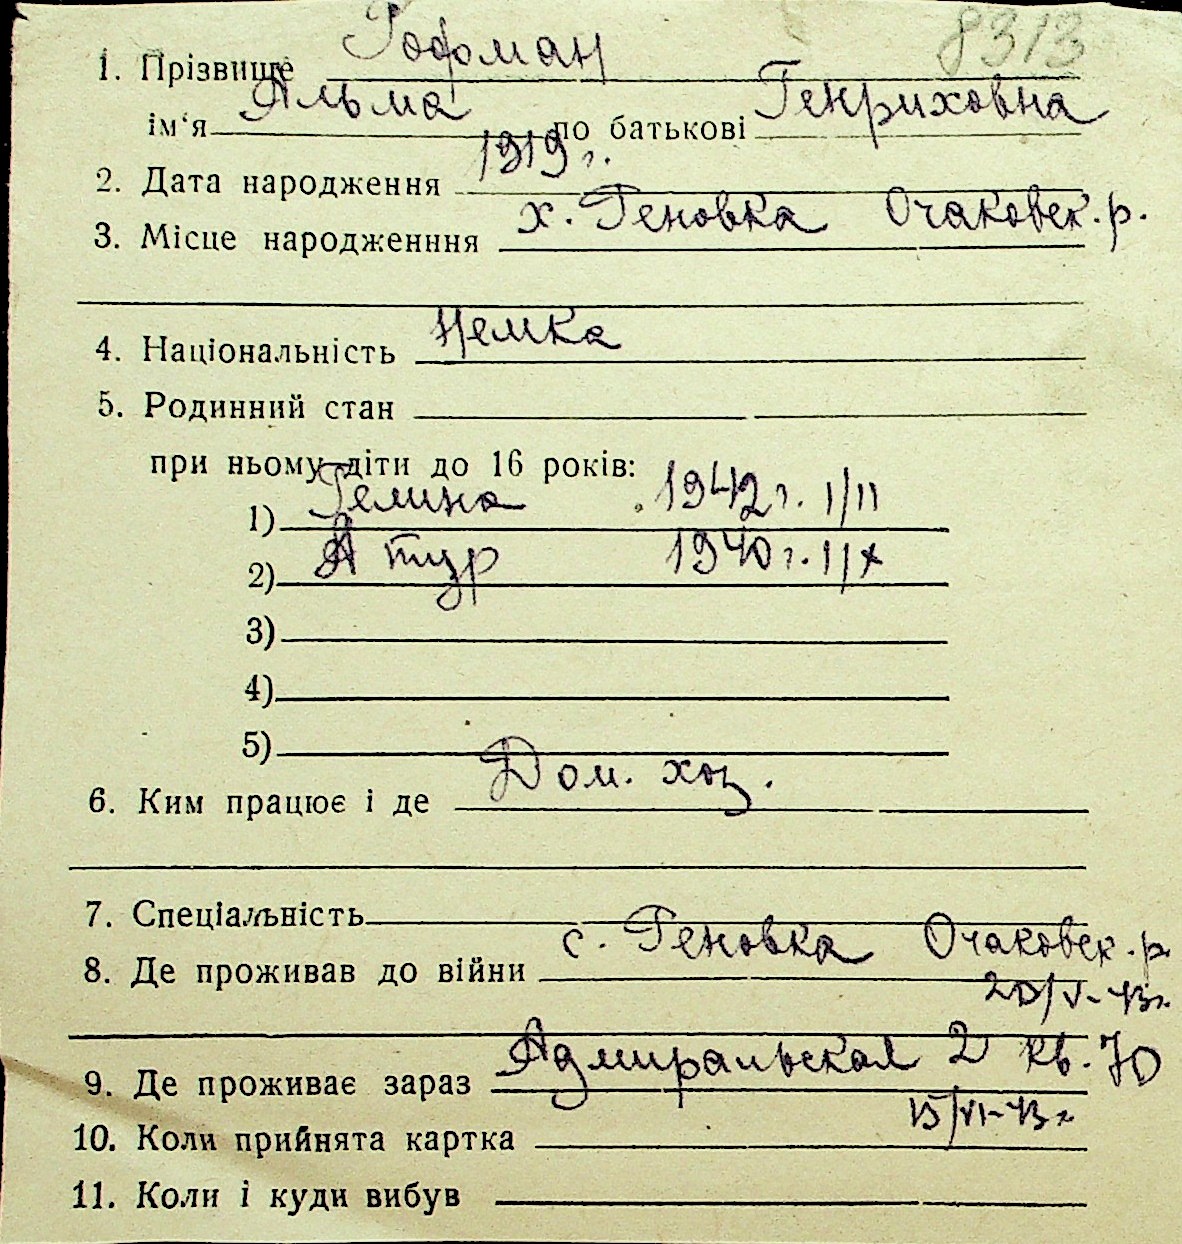 8313
1. Прізвище Гофман
ім'я Альма по батькові Генриховна
2. Дата народження 1919 г.
3. Місце народженння х. Геновка Очаковск. р.
4. Національність Немка
5. Родинний стан
при ньому діти до 16 років:
1) Гелина 1942 г. I/II
2) Атур 1940 г. I/X
3)
4)
5)
6. Ким працює і де Дом. хоз.
7. Спеціальність
8. Де проживав до війни с. Геновка Очаковск. р.
20/V-43г.
9. Де проживає зараз Адмиральская 2 кв. 70
10. Коли прийнята картка 15/VI-43г
11. Коли і куди вибув